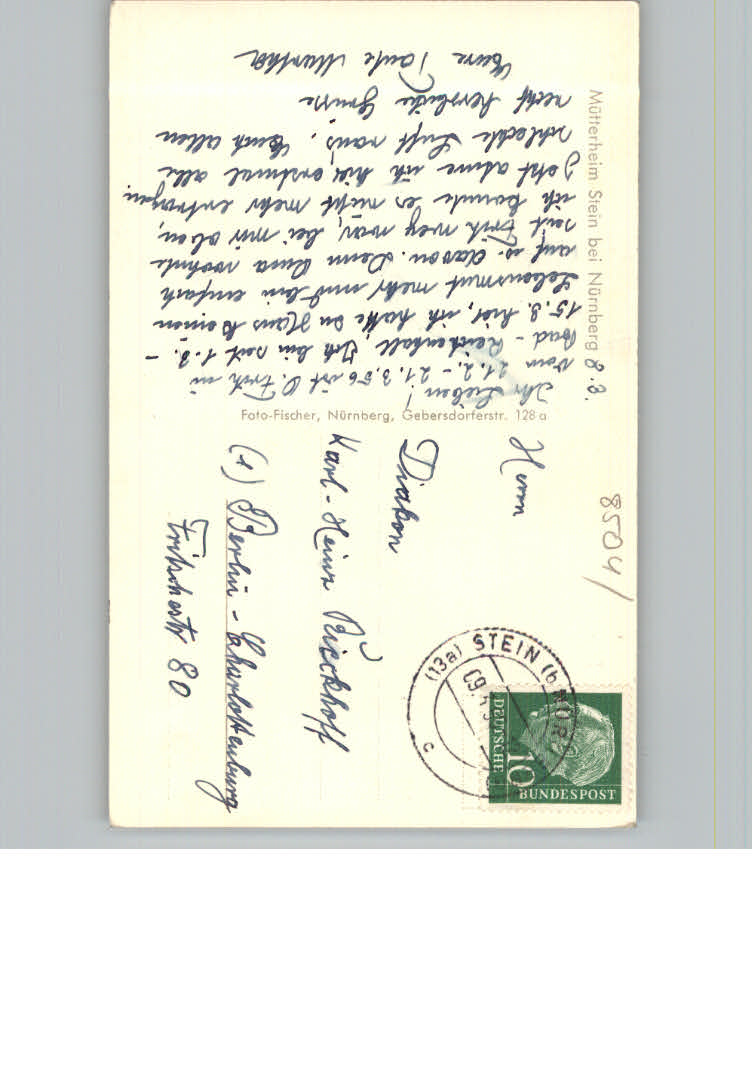 Mütterheim Stein bei Nürnberg
8.3.
Ihr Lieben!
vom 21.2. - 21.3.56 ist O. Erich in
Bad - Reichenhall, Ich bin seit 1.3. -
15.3. hier, ich hatte zu Haus keinen
Lebensmut mehr und bin einfach
auf u. davon. Denn Anna wohnte
seit Erich weg war, bei mir oben,
ich konnte es nicht mehr ertragen.
Jetzt atme ich hier erstmal alle
schlechte Luft raus. Euch allen
recht herzliche Grüsse
Eure Tante Martha
Foto-Fischer, Nürnberg, Gebersdorferstr. 128 a
Herrn
Diakon
Karl-Heinz Rieckhoff
(1) Berlin - Charlottenburg
Fritschestr 80
8504/
(13a) STEIN (b NÜR
c
10
DEUTSCHE
BUNDESPOST